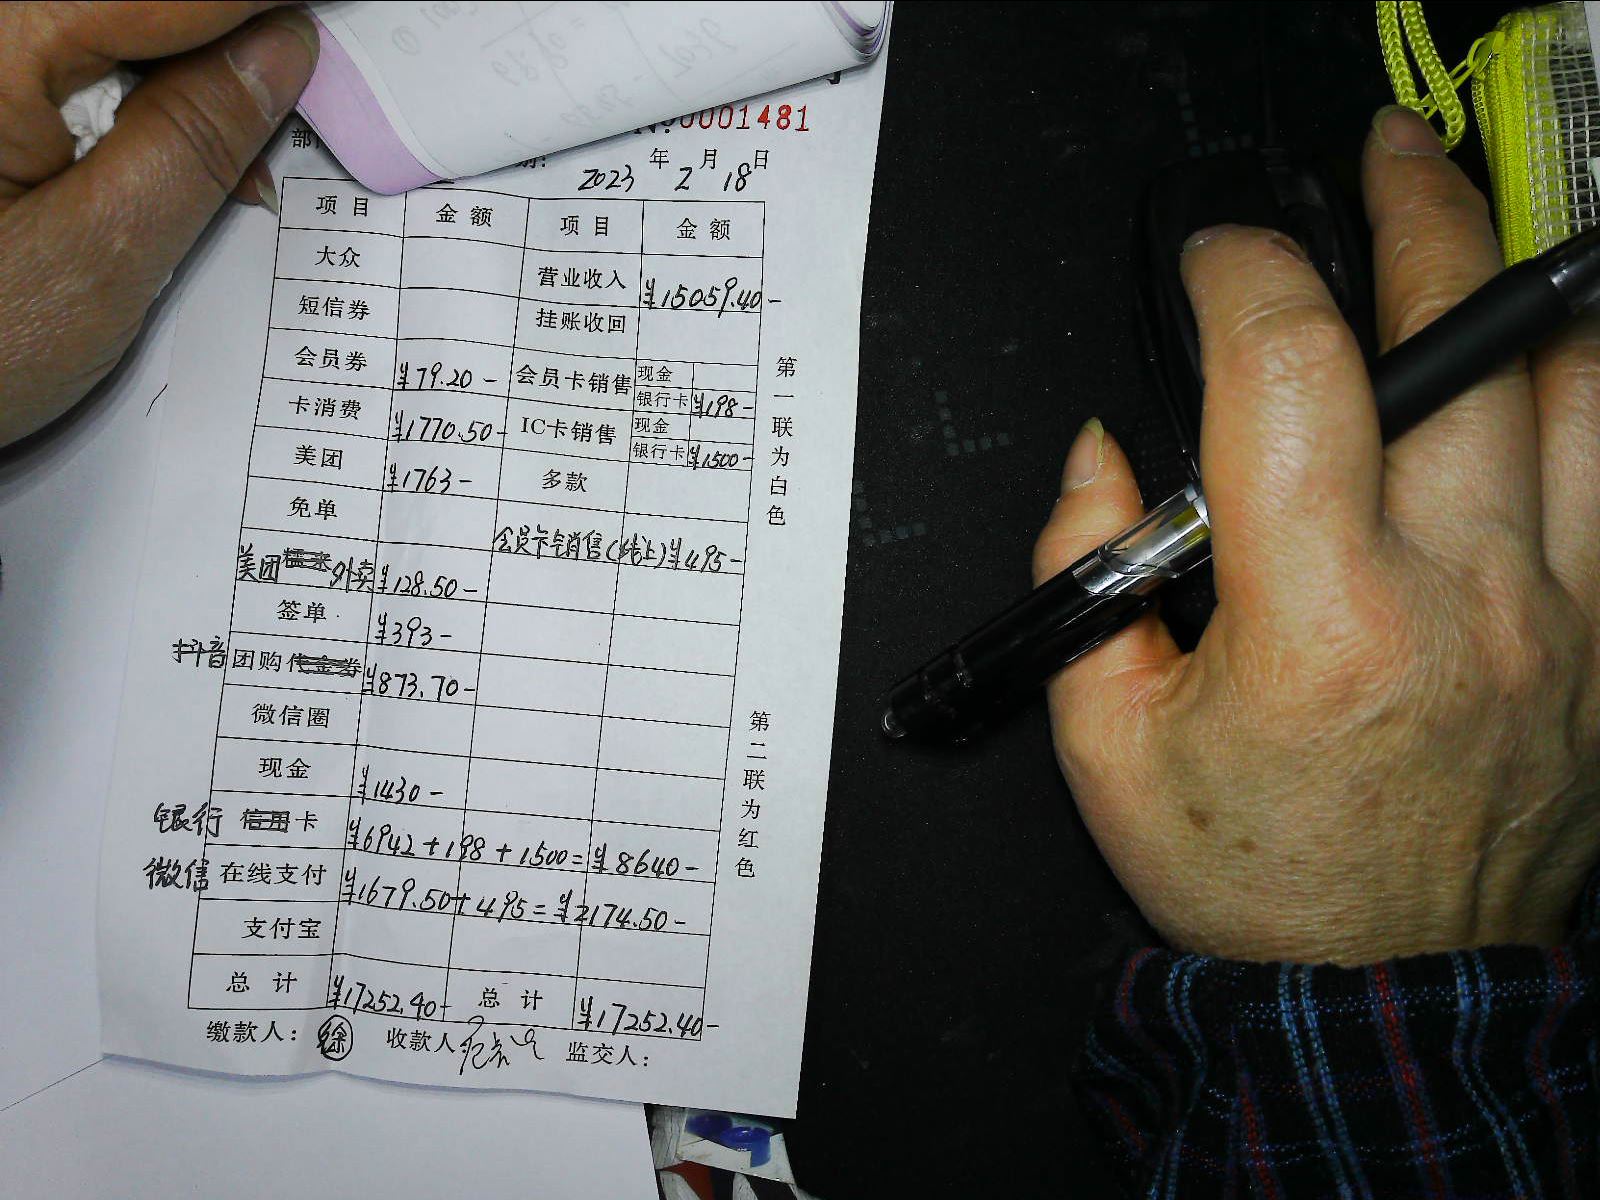 №0001481
部
期: 2023 年 2 月 18 日
项 目 金 额 项 目 金 额
大众 营业收入 ¥15059.40-
短信券 挂账收回
会员券 ¥79.20- 会员卡销售 现金
银行卡 ¥198-
卡消费 ¥1770.50- IC卡销售 现金
银行卡 ¥1500-
美团 ¥1763- 多款
免单 会员卡销售(线上) ¥495-
美团外卖 ¥128.50-
签单 ¥393-
抖音团购代金券 ¥873.70-
微信圈
现金 ¥1430-
银行 信用卡 ¥6942+198+1500=¥8640-
微信 在线支付 ¥1679.50+495=¥2174.50-
支付宝
总 计 ¥17252.40- 总 计 ¥17252.40-
缴款人: 徐 收款人 监交人:
第一联为白色
第二联为红色